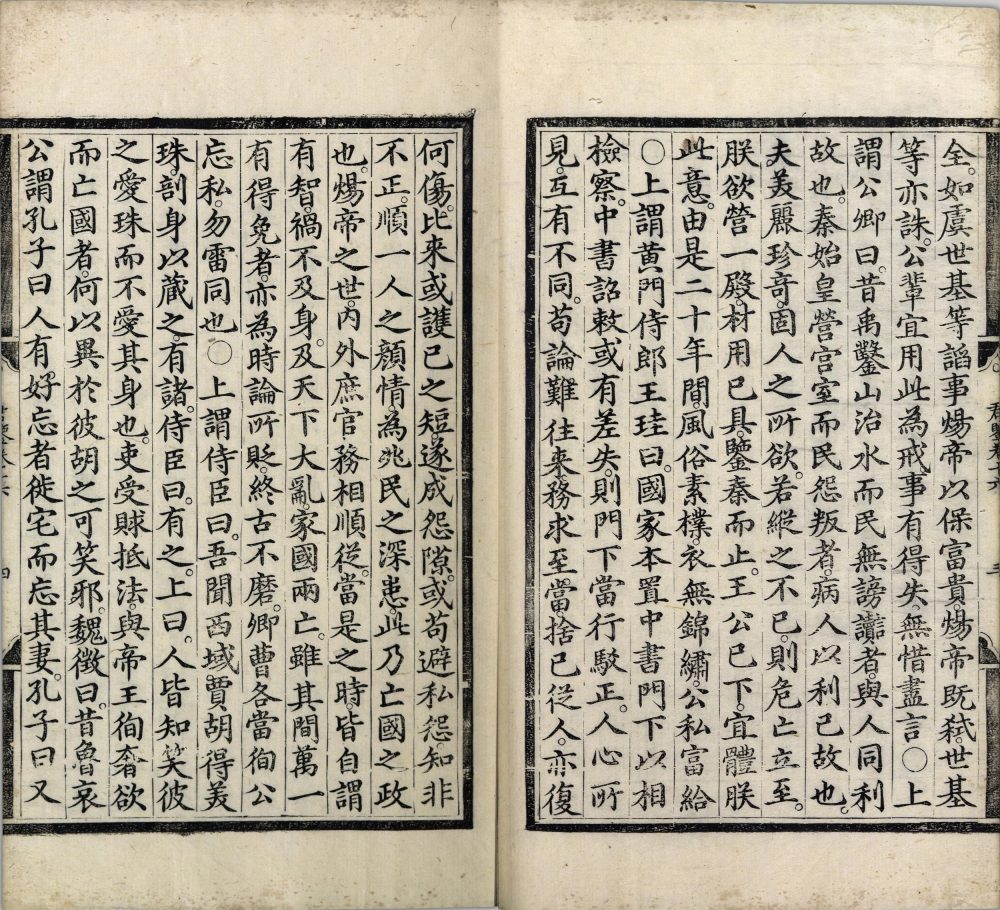 全。如虞世基等諂事煬帝以保富貴。煬帝既弑。世基
等亦誅。公輩宜用此為戒事有得失。無惜盡言〇上
謂公卿曰。昔禹鑿山治水而民無謗讟者。與人同利
故也。秦始皇營宮室而民怨叛者。病人以利己故也。
夫美麗珍奇。固人之所欲。若縱之不已。則危亡立至。
朕欲營一殿。材用已具。鑒秦而止。王公已下。宜體朕
此意。由是二十年間。風俗素樸。衣無錦繡。公私富給
〇上謂黃門侍郎王珪曰。國家本置中書門下以相
檢察。中書詔敕或有差失。則門下當行駮正。人心所
見。互有不同。苟論難往來。務求至當。捨己從人。亦復
何傷。比來或護己之短。遂成怨隙。或苟避私怨。知非
不正。順一人之顏情。為兆民之深患。此乃亡國之政
也。煬帝之世。內外庶官。務相順從。當是之時。皆自謂
有智。禍不及身。及天下大亂。家國兩亡。雖其間萬一
有得免者。亦為時論所貶。終古不磨。卿曹各當徇公
忘私。勿雷同也〇上謂侍臣曰。吾聞西域賈胡得美
珠。剖身以藏之。有諸。侍臣曰。有之。上曰。人皆知笑彼
之愛珠而不愛其身也。吏受賕抵法。與帝王徇奢欲
而亡國者。何以異於彼胡之可笑邪。魏徵曰。昔魯哀
公謂孔子曰人有好忘者。徙宅而忘其妻。孔子曰又